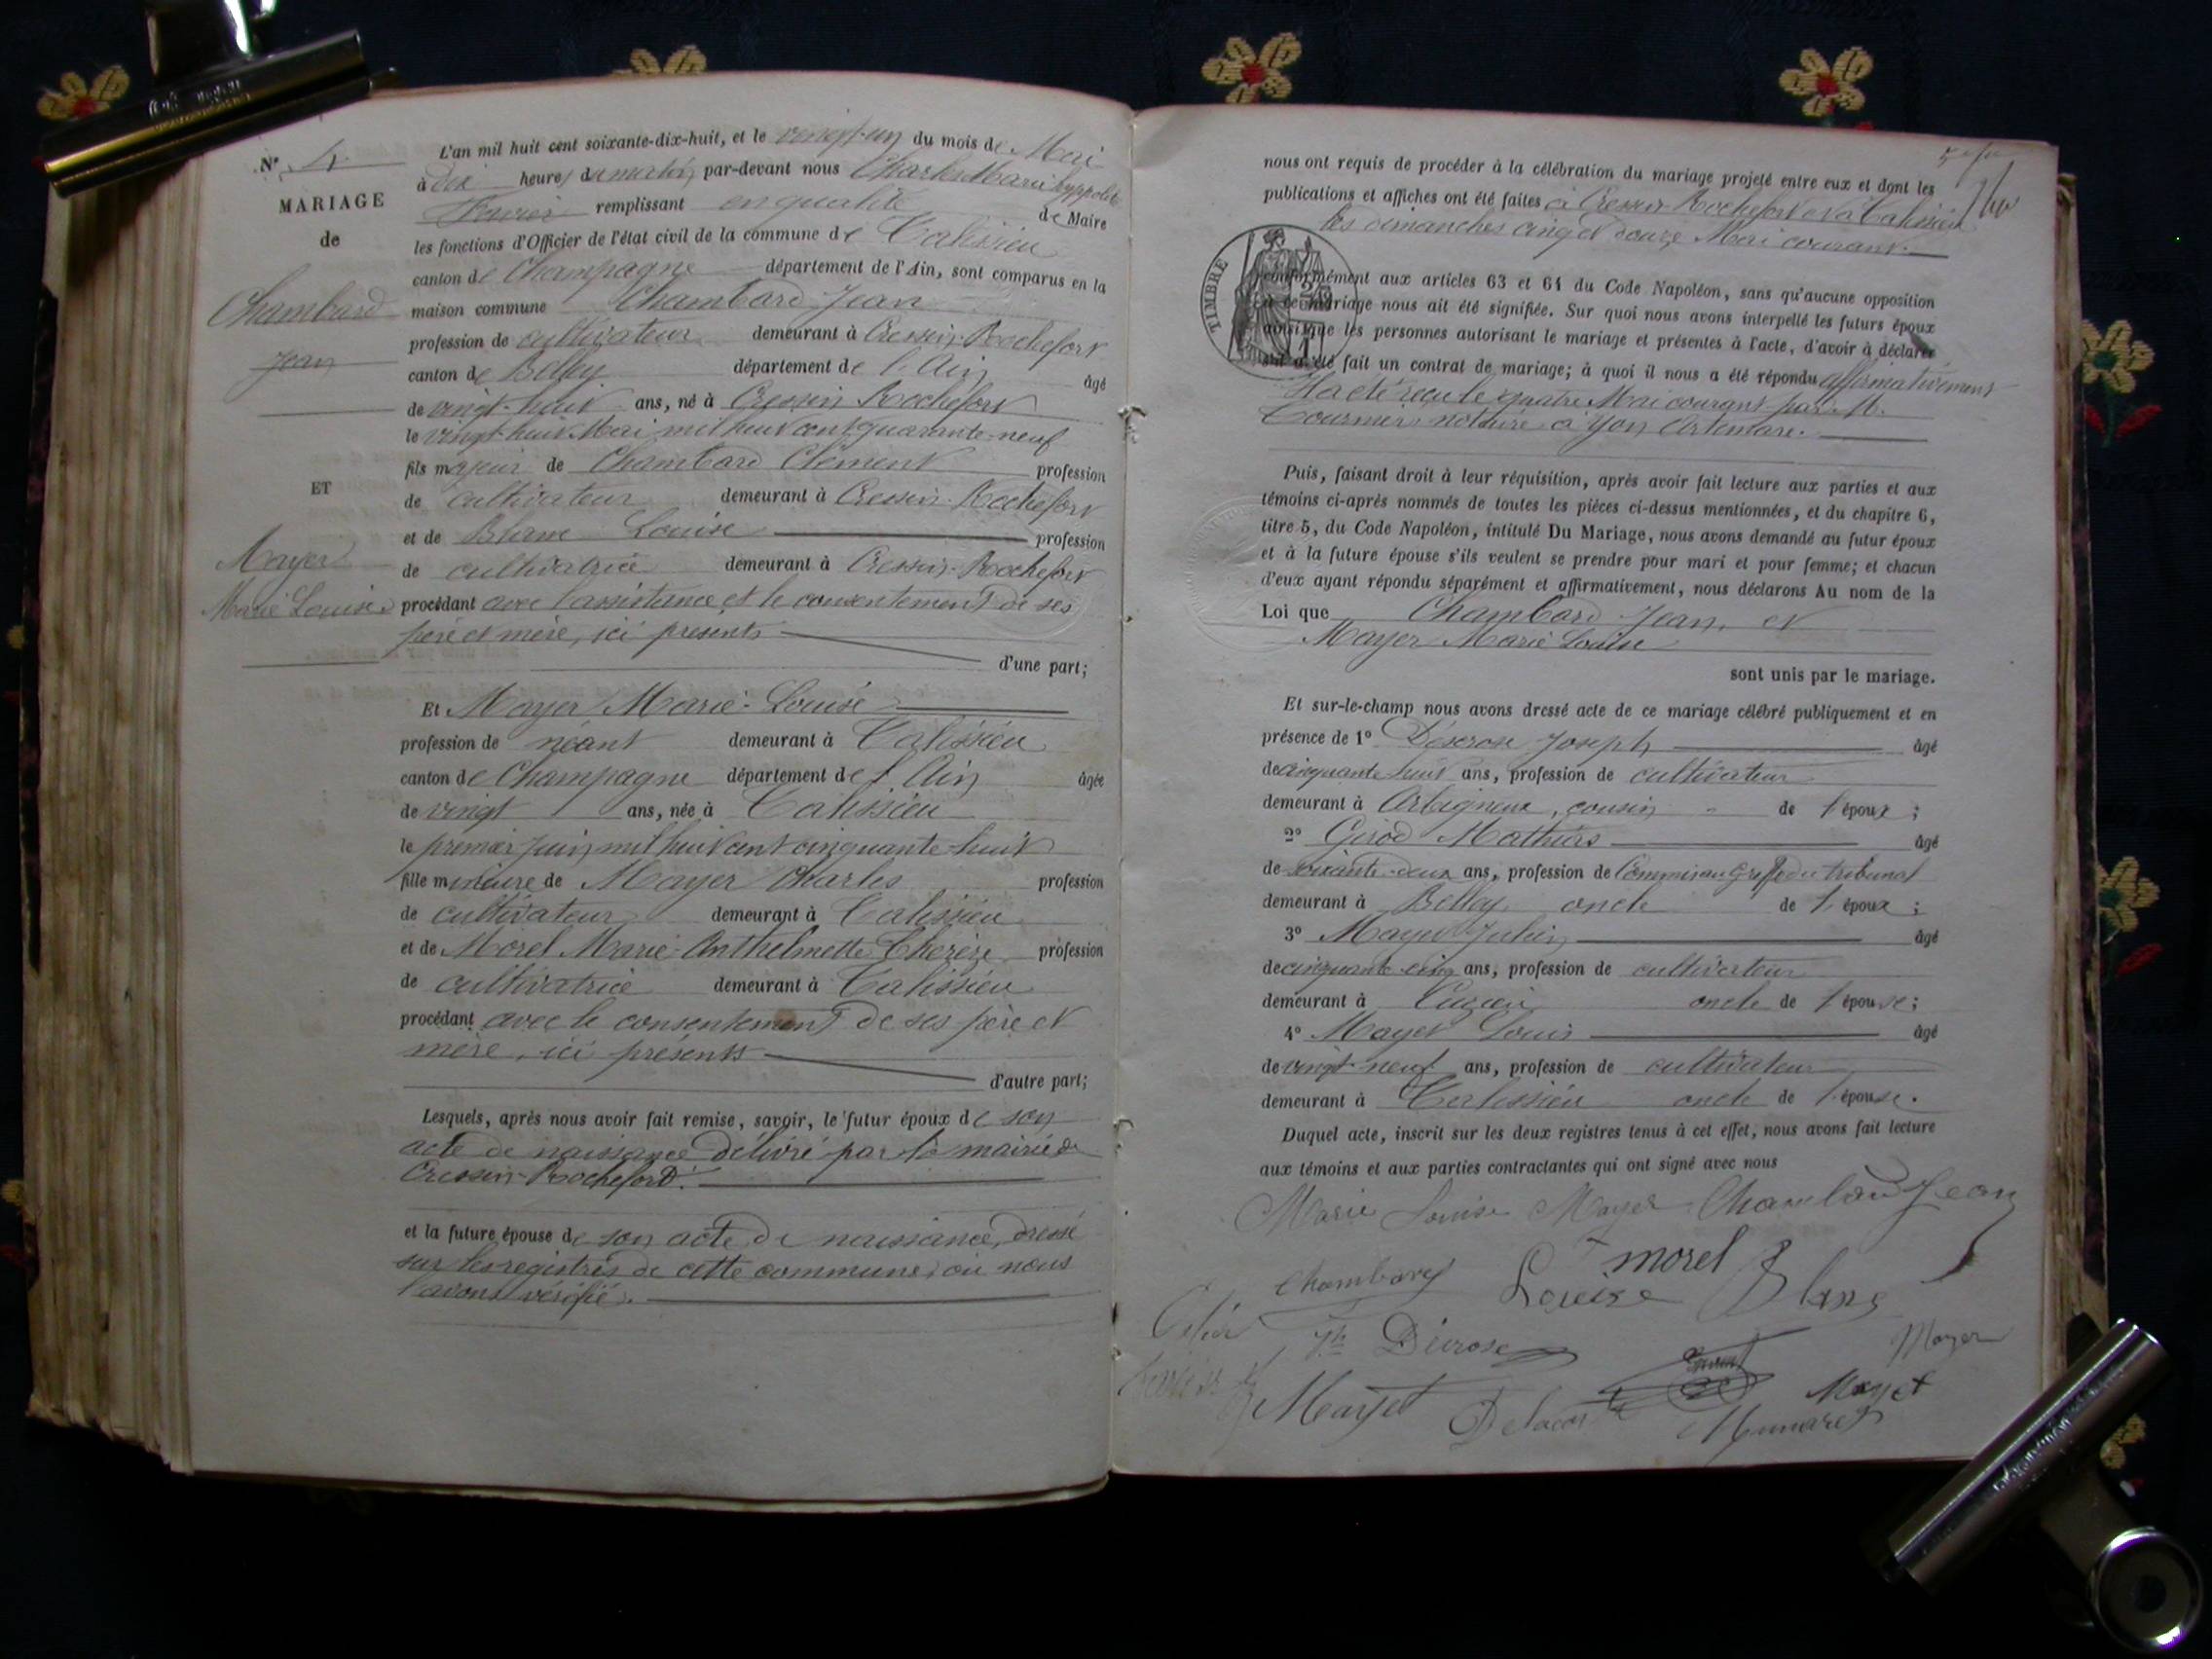 N° 4
MARIAGE
de
Chambard
Jean
ET
Mayer
Marie Louise
L'an mil huit cent soixante-dix-huit, et le vingt-un du mois de Mai
à dix heures du matin, par-devant nous Charles Marie hyppolite
remplissant en qualité de Maire
les fonctions d'Officier de l'état civil de la commune de Talissieu
canton de Champagne département de l'Ain, sont comparus en la
maison commune Chambard Jean
profession de cultivateur demeurant à Cressin-Rochefort
canton de Belley département de l'Ain âgé
de vingt-huit ans, né à Cressin Rochefort
le vingt-huit Mai mil huit cent quarante-neuf
fils majeur de Chambard Clément profession
de cultivateur demeurant à Cressin-Rochefort
et de Blanc Louise profession
de cultivatrice demeurant à Cressin-Rochefort
procédant avec l'assistance et le consentement de ses
père et mère, ici présents
d'une part;
Et Mayer Marie-Louise
profession de néant demeurant à Talissieu
canton de Champagne département de l'Ain âgée
de vingt ans, née à Talissieu
le premier juin mil huit cent cinquante-huit
fille mineure de Mayer Charles profession
de cultivateur demeurant à Talissieu
et de Morel Marie-Anthelmette Therèse profession
de cultivatrice demeurant à Talissieu
procédant avec le consentement de ses père et
mère, ici présents
d'autre part;
Lesquels, après nous avoir fait remise, savoir, le futur époux de son
acte de naissance délivré par la mairie de
Cressin-Rochefort.
et la future épouse de son acte de naissance, dressé
sur les registres de cette commune, où nous
l'avons vérifié.
nous ont requis de procéder à la célébration du mariage projeté entre eux et dont les
publications et affiches ont été faites à Cressin-Rochefort et à Talissieu
les dimanches cinq et douze Mai courant.
TIMBRE
conformément aux articles 63 et 64 du Code Napoléon, sans qu'aucune opposition
à ce mariage nous ait été signifiée. Sur quoi nous avons interpellé les futurs époux
ainsi que les personnes autorisant le mariage et présentes à l'acte, d'avoir à déclarer
s'il a été fait un contrat de mariage; à quoi il nous a été répondu affirmativement
Il a été reçu le quatre Mai courant par M.
notaire à Yon Artemare.
Puis, faisant droit à leur réquisition, après avoir fait lecture aux parties et aux
témoins ci-après nommés de toutes les pièces ci-dessus mentionnées, et du chapitre 6,
titre 5, du Code Napoléon, intitulé Du Mariage, nous avons demandé au futur époux
et à la future épouse s'ils veulent se prendre pour mari et pour femme; et chacun
d'eux ayant répondu séparément et affirmativement, nous déclarons Au nom de la
Loi que Chambard Jean, et
Mayer Marie Louise
sont unis par le mariage.
Et sur-le-champ nous avons dressé acte de ce mariage célébré publiquement et en
présence de 1° Joseph âgé
de cinquante huit ans, profession de cultivateur
demeurant à cousin de l'époux;
2° Girod Mathias âgé
de soixante-deux ans, profession de Commis au Greffe du tribunal
demeurant à Belley oncle de l'époux;
3° Mayer âgé
de cinquante-cinq ans, profession de cultivateur
demeurant à oncle de l'épouse;
4° Mayer Louis âgé
de vingt-neuf ans, profession de cultivateur
demeurant à Talissieu oncle de l'épouse.
Duquel acte, inscrit sur les deux registres tenus à cet effet, nous avons fait lecture
aux témoins et aux parties contractantes qui ont signé avec nous
Marie Louise Mayer Chambard Jean
Chambard morel
Louise Blanc
Mayer
Mayet